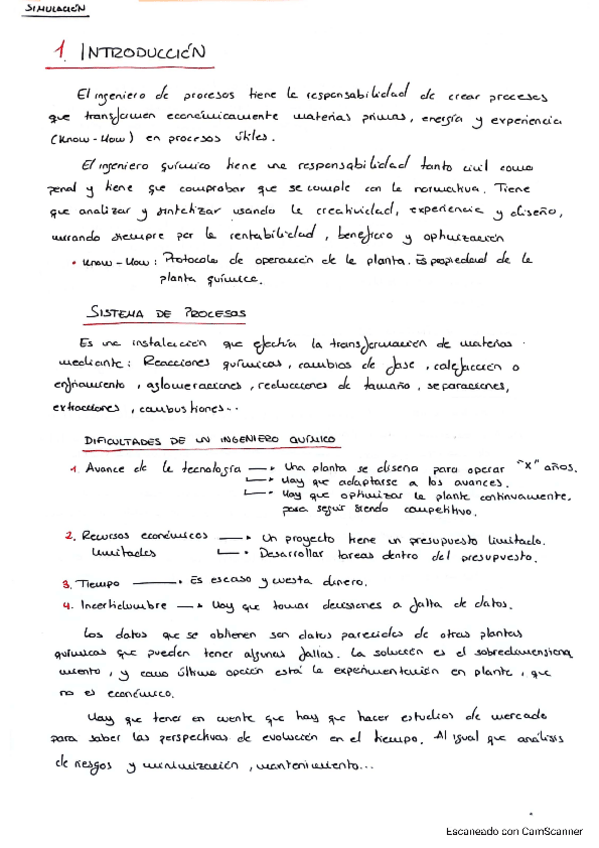 SIMULACIÓN
1. INTRODUCCIÓN
El ingeniero de procesos tiene la responsabilidad de crear procesos
que transformen económicamente materias primas, energía y experiencia
(Know-How) en procesos útiles.
El ingeniero químico tiene una responsabilidad tanto civil como
penal y tiene que comprobar que se cumple con la normativa. Tiene
que analizar y sintetizar usando la creatividad, experiencia y diseño,
mirando siempre por la rentabilidad, beneficio y optimización
• Know-How: Protocolo de operación de la planta. Es propiedad de la
planta química.
SISTEMA DE PROCESOS
Es una instalación que efectúa la transformación de materias
mediante: Reacciones químicas, cambios de fase, calefacción o
enfriamiento, aglomeraciones, reducciones de tamaño, separaciones,
extracciones, combustiones...
DIFICULTADES DE UN INGENIERO QUÍMICO
1 Avance de la tecnología → Una planta se diseña para operar "X" años.
→ Hay que adaptarse a los avances.
→ Hay que optimizar la planta continuamente,
para seguir siendo competitivo.
2. Recursos económicos → Un proyecto tiene un presupuesto limitado.
limitados → Desarrollar tareas dentro del presupuesto.
3. Tiempo → Es escaso y cuesta dinero.
4. Incertidumbre → Hay que tomar decisiones a falta de datos.
Los datos que se obtienen son datos parecidos de otras plantas
químicas que pueden tener algunas fallas. La solución es el sobredimensiona
miento, y como última opción está la experimentación en planta, que
no es económico.
Hay que tener en cuenta que hay que hacer estudios de mercado
para saber las perspectivas de evolución en el tiempo. Al igual que análisis
de riesgos y minimización, mantenimiento...
Escaneado con CamScanner